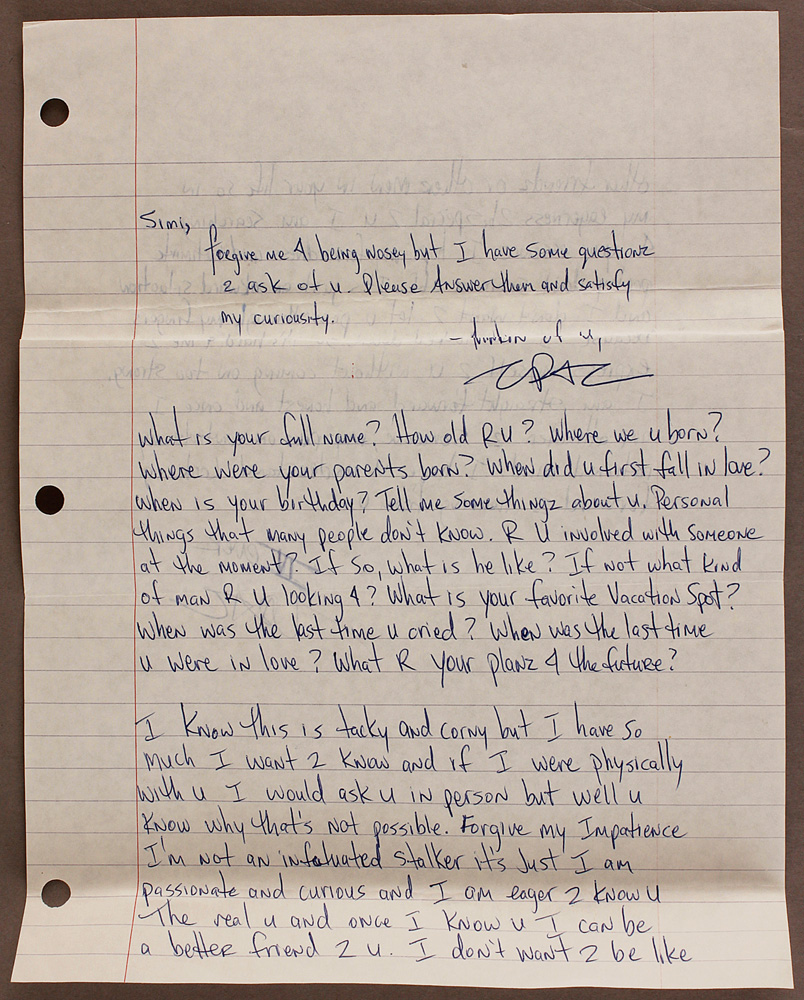 Simi,
forgive me 4 being nosey but I have some questionz
2 ask of u. Please Answer them and satisfy
my curiousity.
- thinkin of u,
2PAC
What is your full name? How old R U? Where we u born?
Where were your parents born? When did u first fall in love?
When is your birthday? Tell me some thingz about u. Personal
things that many people don't know. R U involved with someone
at the moment? If so, what is he like? If not what kind
of man R U looking 4? What is your favorite Vacation Spot?
When was the last time u cried? When was the last time
u were in love? What R your planz 4 the future?
I know this is tacky and corny but I have so
much I want 2 know and if I were physically
with u I would ask u in person but well u
know why that's not possible. Forgive my Impatience
I'm not an infatuated stalker it's just I am
passionate and curious and I am eager 2 know u
The real u and once I know u I can be
a better friend 2 u. I don't want 2 be like